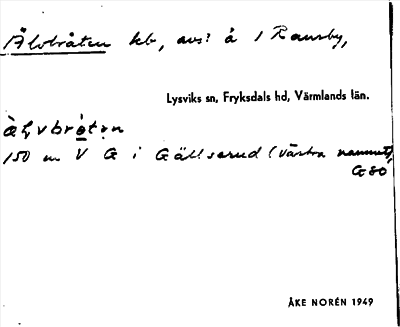 Älvbråten kb, avs: å 1 Ransby,
Lysviks sn, Fryksdals hd, Värmlands län.
àl̥vbrò̲tn̥
150 m V G i Gällserud (västra namnet),
G 80
ÅKE NORÉN 1949